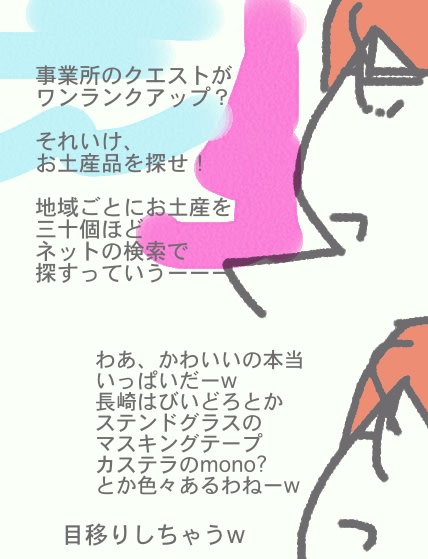 事業所のクエストが
ワンランクアップ？
それいけ、
お土産品を探せ！
地域ごとにお土産を
三十個ほど
ネットの検索で
探すっていうーーー
わあ、かわいいの本当
いっぱいだーw
長崎はびいどろとか
ステンドグラスの
マスキングテープ
カステラのmono?
とか色々あるわねーw
目移りしちゃうw